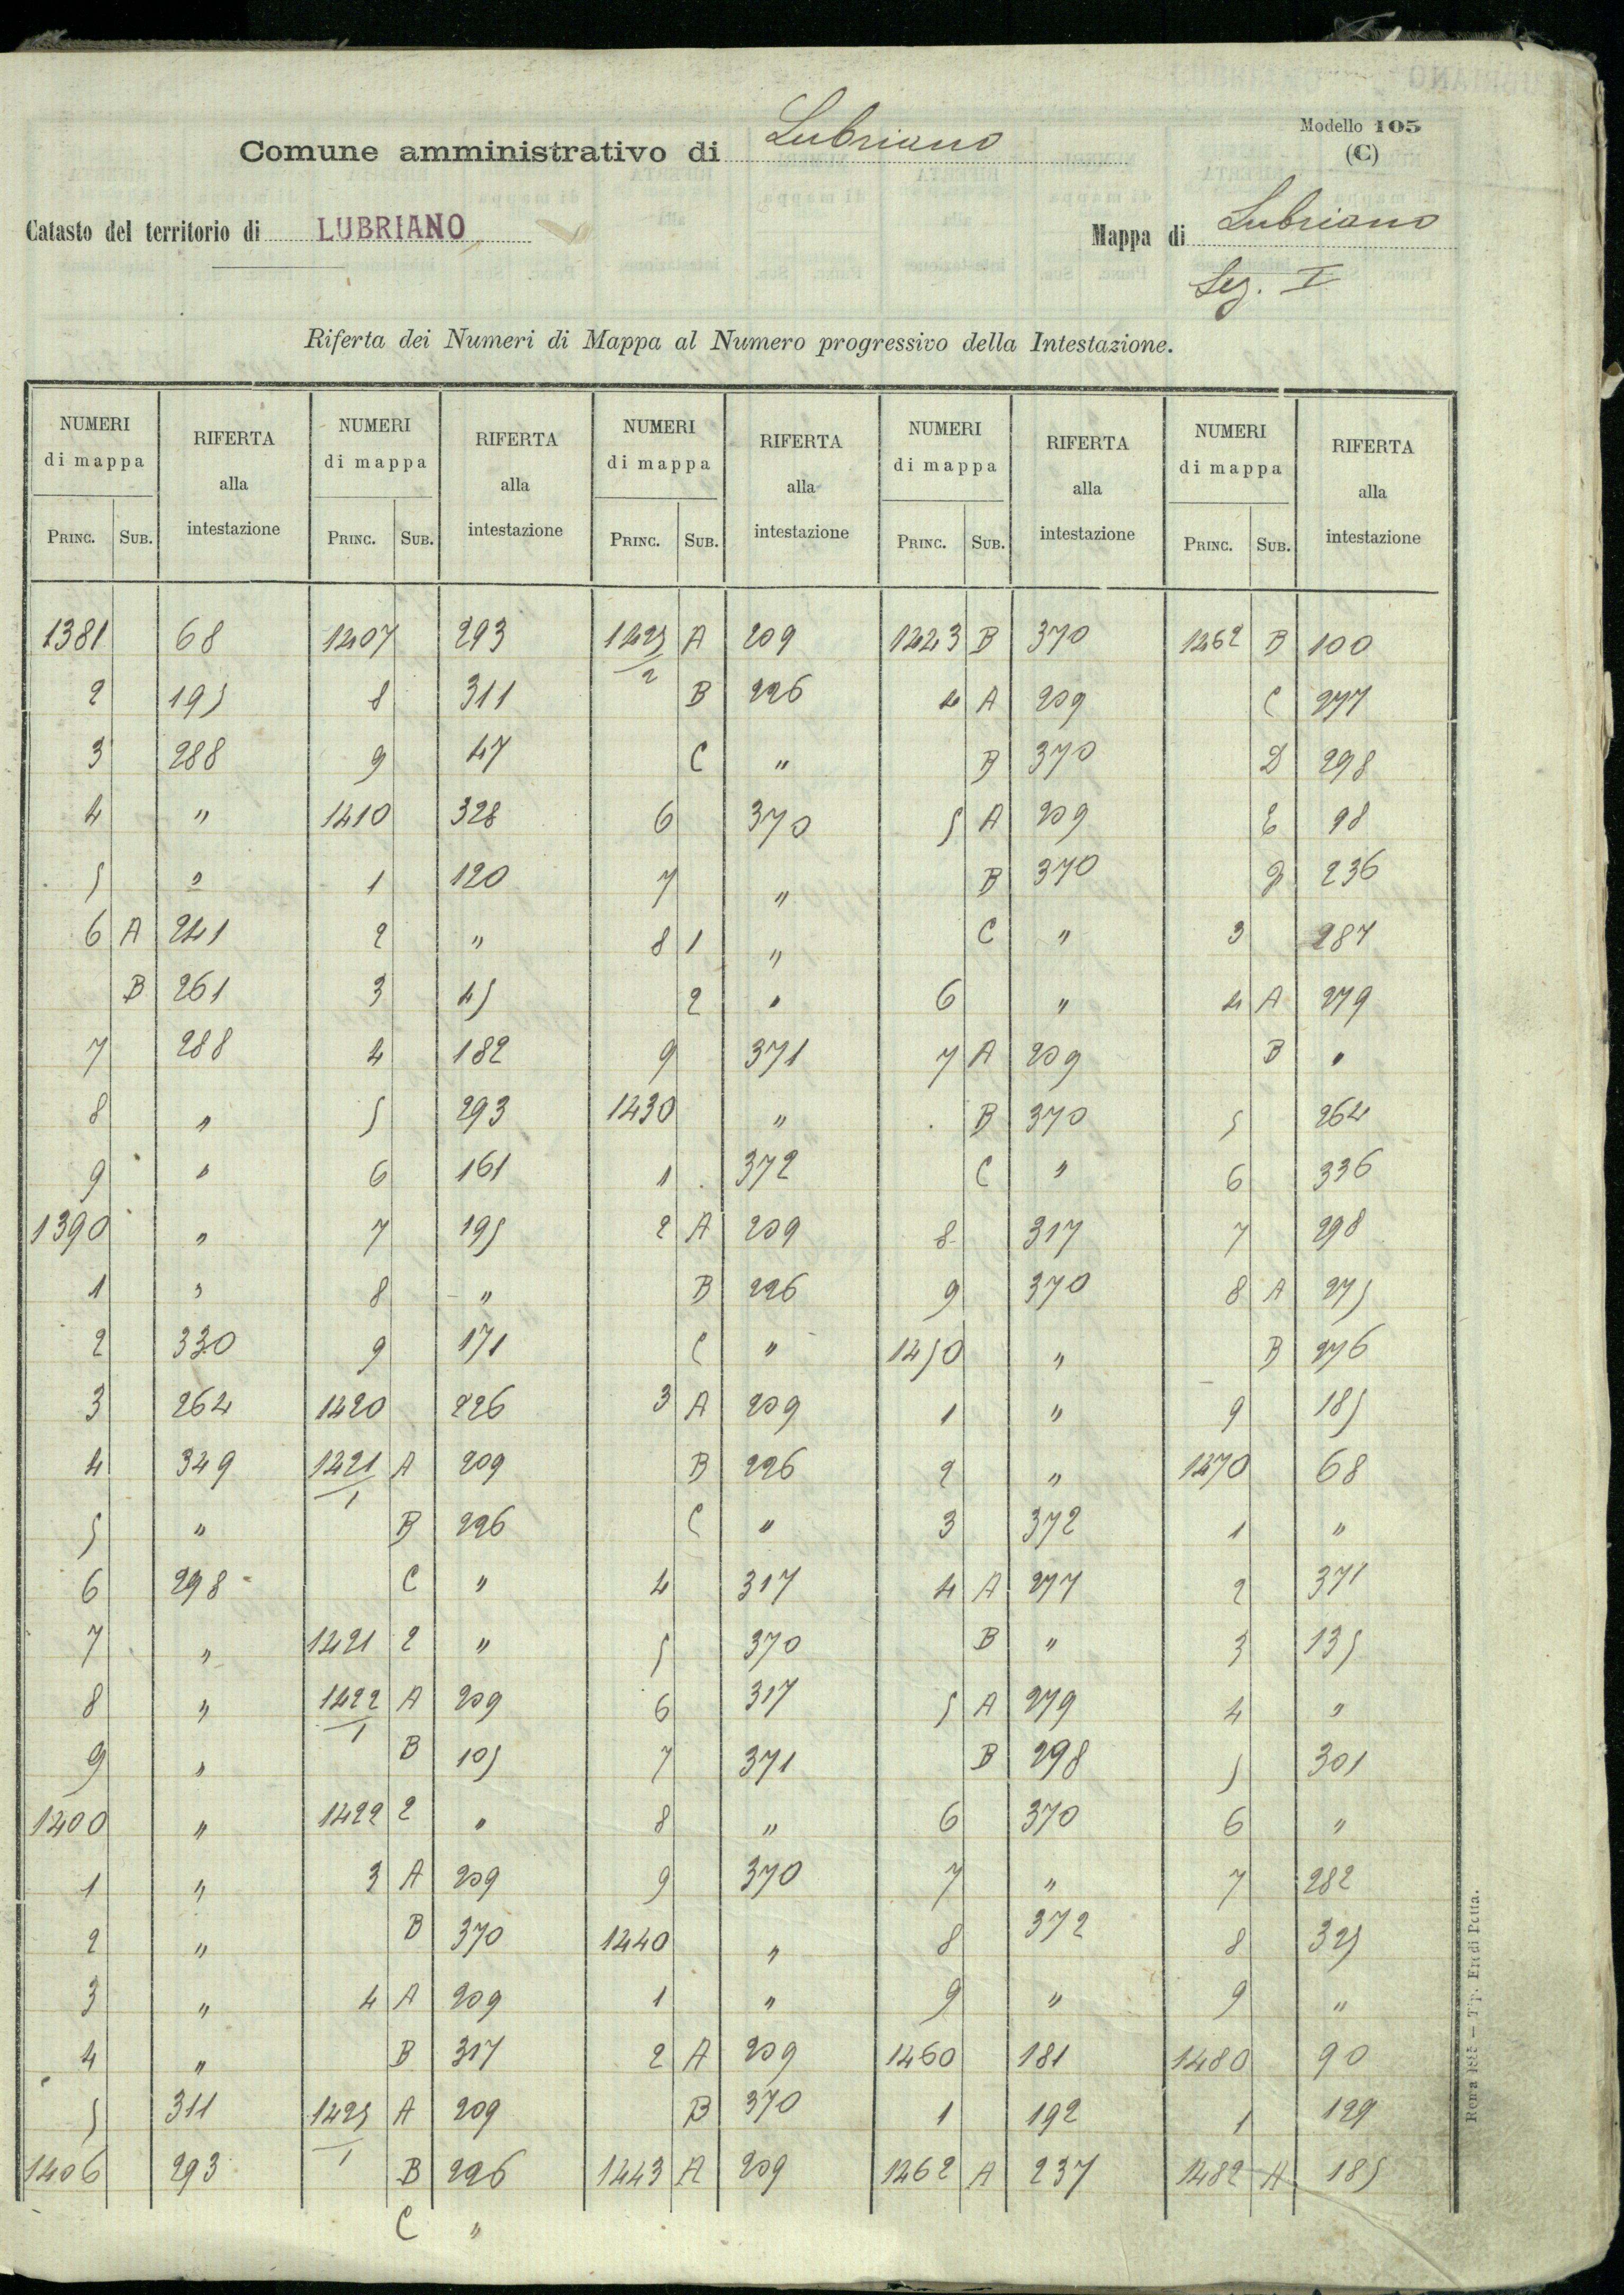 Modello 105
(C)
Comune amministrativo di Lubriano
Catasto del territorio di LUBRIANO
Mappa di Lubriano
Sez. I
Riferta dei Numeri di Mappa al Numero progressivo della Intestazione.
NUMERI di mappa RIFERTA alla intestazione NUMERI di mappa RIFERTA alla intestazione NUMERI di mappa RIFERTA alla intestazione NUMERI di mappa RIFERTA alla intestazione NUMERI di mappa RIFERTA alla intestazione
PRINC. SUB. PRINC. SUB. PRINC. SUB. PRINC. SUB. PRINC. SUB.
1381 68 1407 293 1425/2 A 209 1443 B 370 1462 B 100
2 195 8 311 B 226 4 A 209 C 277
3 288 9 47 C " B 370 D 298
4 " 1410 328 6 370 5 A 209 E 98
5 " 1 120 7 " B 370 236
6 A 241 2 " 8 1 " C " 3 287
B 261 3 45 2 " 6 " 4 A 279
7 288 4 182 9 371 7 A 209 B "
8 " 5 293 1430 " B 370 5 264
9 " 6 161 1 372 C " 6 336
1390 " 7 195 2 A 209 8 317 7 298
1 " 8 " B 226 9 370 8 A 275
2 330 9 171 C " 1450 " B 276
3 264 1420 226 3 A 209 1 " 9 185
4 349 1421/1 A 209 B 226 2 " 1470 68
5 " B 226 C " 3 372 1 "
6 298 C " 4 317 4 A 277 2 371
7 " 1421 2 " 5 370 B " 3 135
8 " 1422/1 A 209 6 317 5 A 279 4 "
9 " B 105 7 371 B 298 5 301
1400 " 1422 2 " 8 " 6 370 6 "
1 " 3 A 209 9 370 7 " 7 282
2 " B 370 1440 " 8 372 8 325
3 " 4 A 209 1 " 9 " 9 "
4 " B 317 2 A 209 1460 181 1480 90
5 311 1425/1 A 209 B 370 1 192 1 129
1406 293 B 226 1443 A 209 1462 A 237 1482 A 185
C "